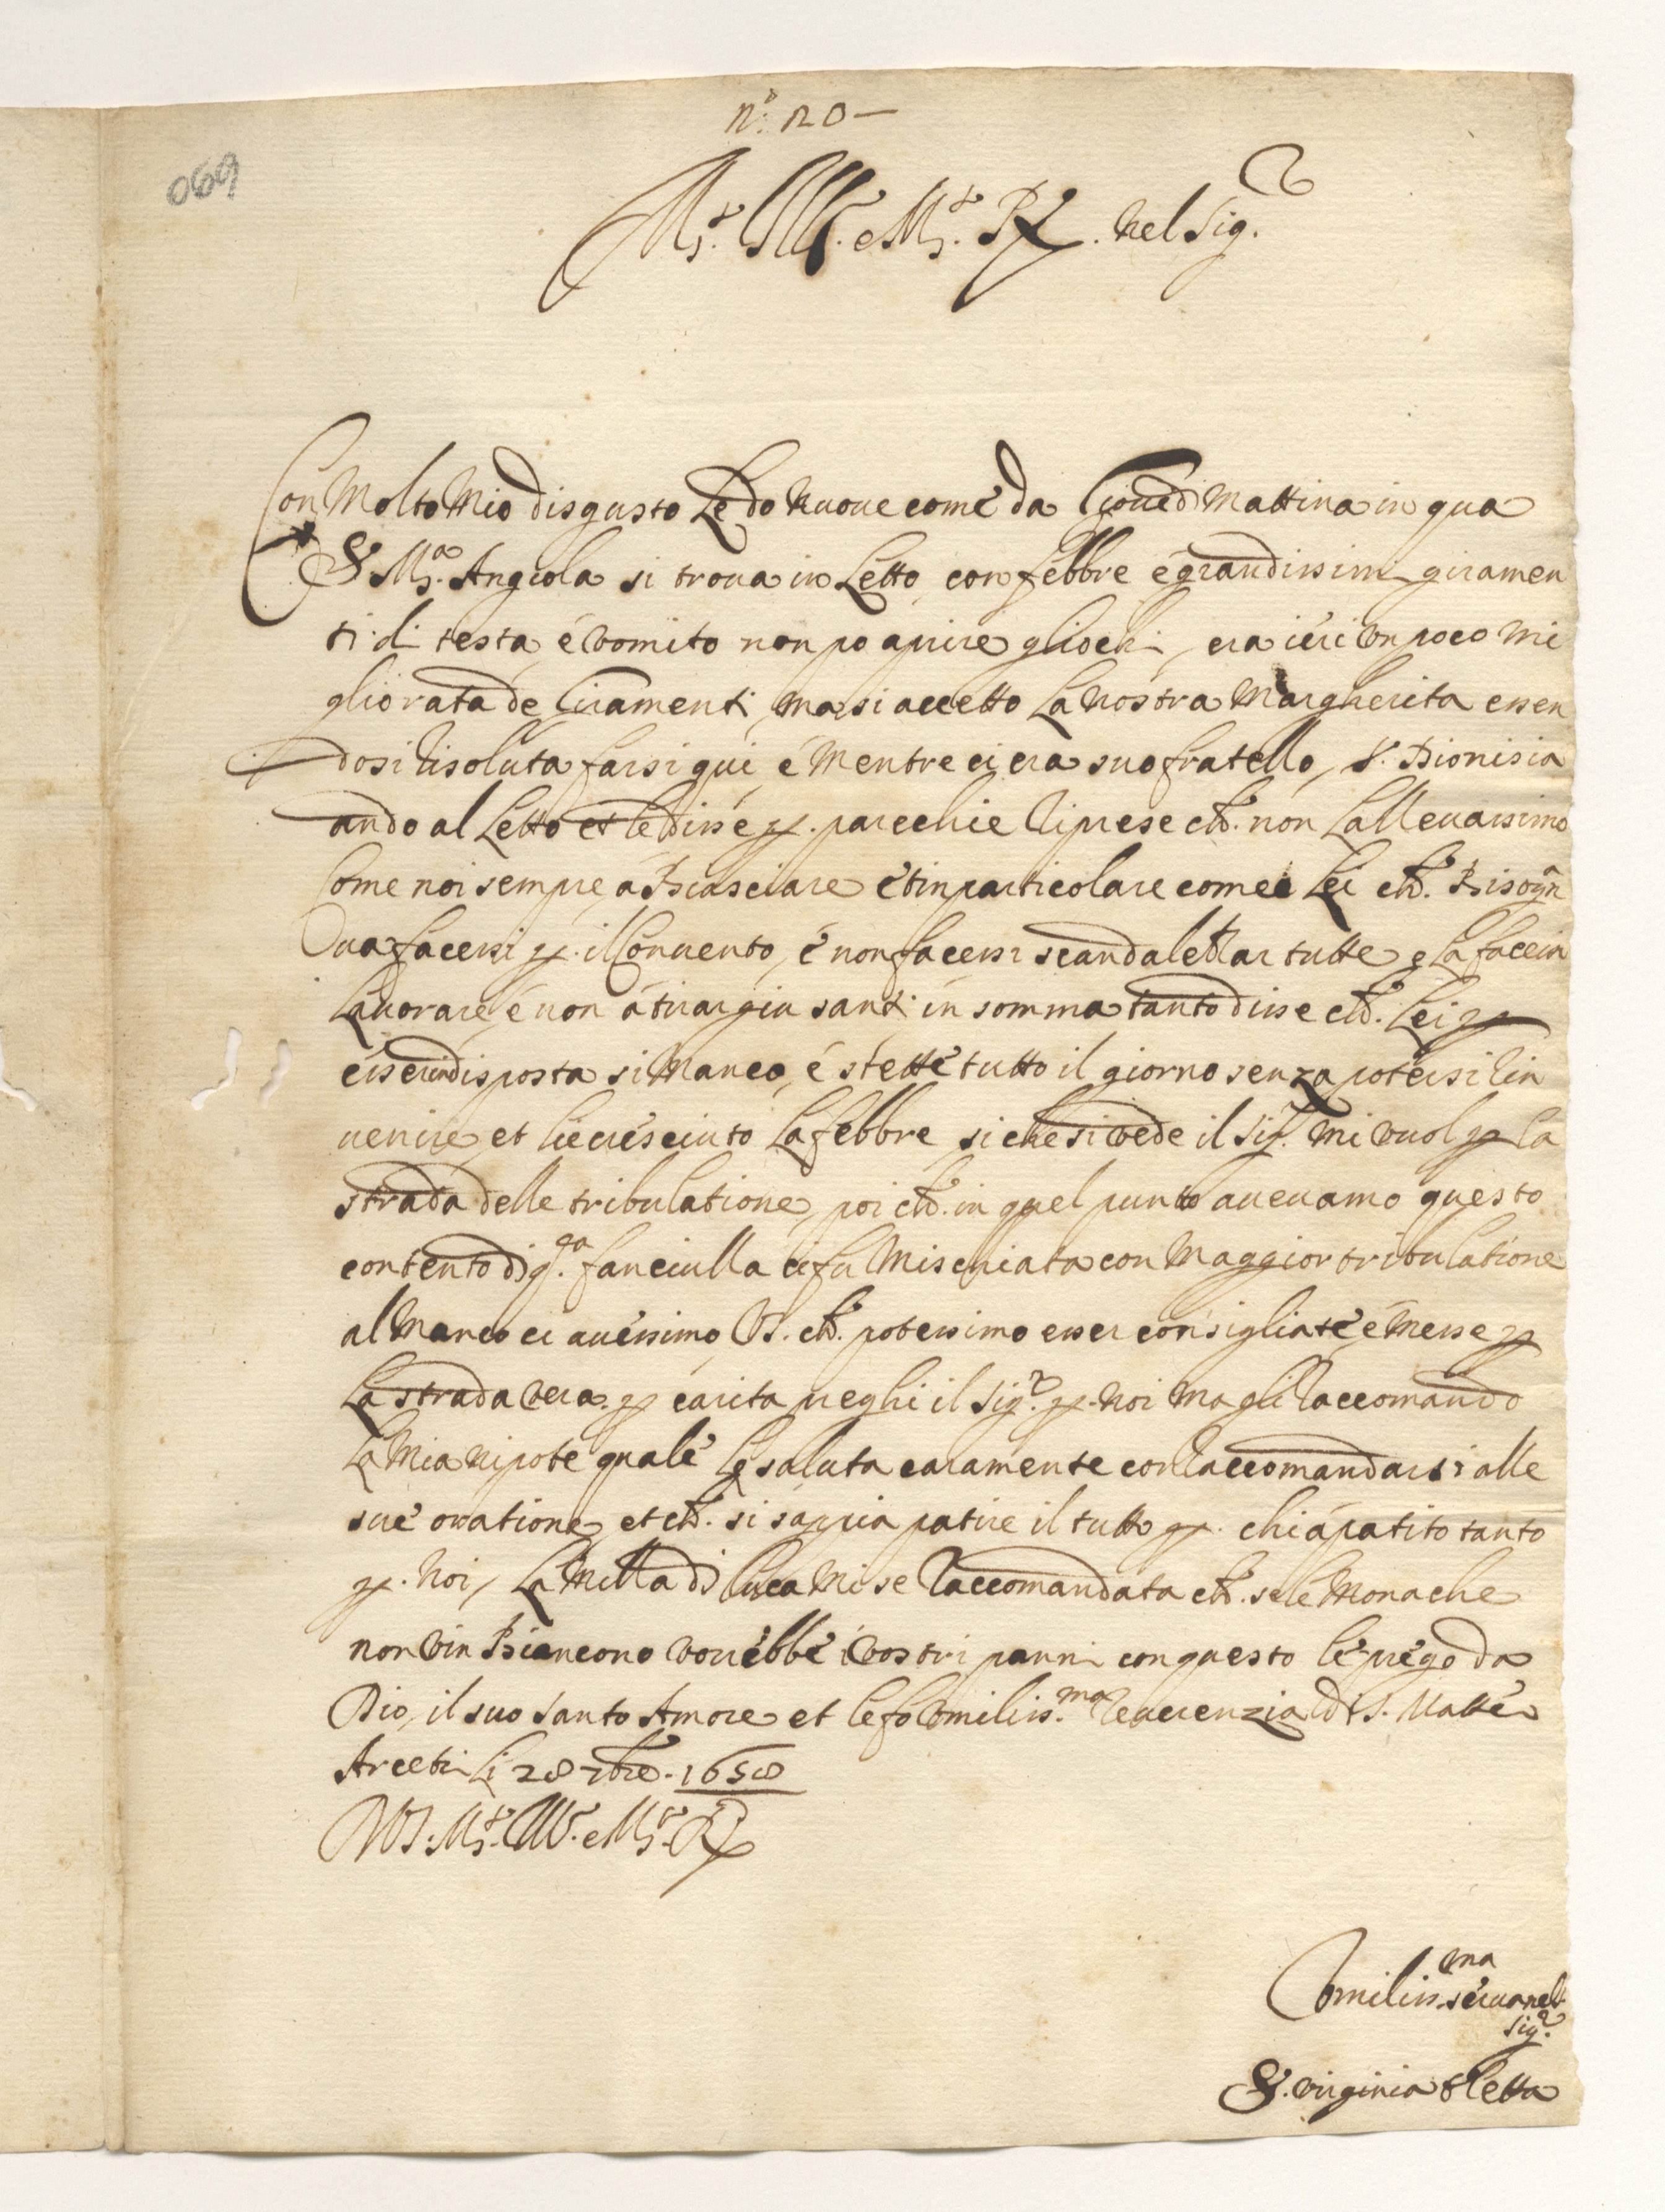 n.o 20 —
069
M.to Ill.re e M.to R.do nel Sig.r
Con molto mio disgusto le do nuove come da Giovedi mattina in qua
S. M.a Angiola si trova in letto con febbre e grandissimi giramen
ti di testa, è vomito non po aprire gliochi, era ieri un poco mi
gliorata de Giramenti ma si accetto la nostra Margherita essen
dosi risoluta farsi qui, è mentre ci era suo fratello, S. Dionisia
ando al letto et le disse p. parechie riprese ch. non l'allevassimo
Come noi sempre à et in particolare come Lei ch. Bisogn
ava facessi p. il Convento, è non facessi tutte e la faccia
lavorare è non à tirar giu santi in somma tanto disse ch. Lei p
esser indisposta si manco, è stette tutto il giorno senza potersi rin
venire et li è cresciuto la febbre si che si vede il Sig. mi vuol p la
strada delle tribulatione, poi ch. in quel punto avevamo questo
contento di q.ta fanciulla ci fu mischiata con maggior tribulatione
al manco ci avessimo VS. ch. potessimo esser consigliate, è messe p
la strada vera. p carita preghi il Sig.r p. noi ma gli raccomando
la mia nipote quale le saluta caramente con raccomandarsi alle
sue oratione, et ch. si sappia patire il tutto p. chi à patito tanto
p. noi, la Milla di luca mi se raccomandata ch. se le Monache
non vin Biancono vorrebbe i vostri panni con questo le prego da
Dio, il suo santo Amore et le fo Umiliss.ma reverenzia di S. Matteo
Arcetri li 28 7bre. 1658
D VS. M.to Ill.re e M.to R.do
Umiliss.ma serva nel
Sig.r
S. Virginia